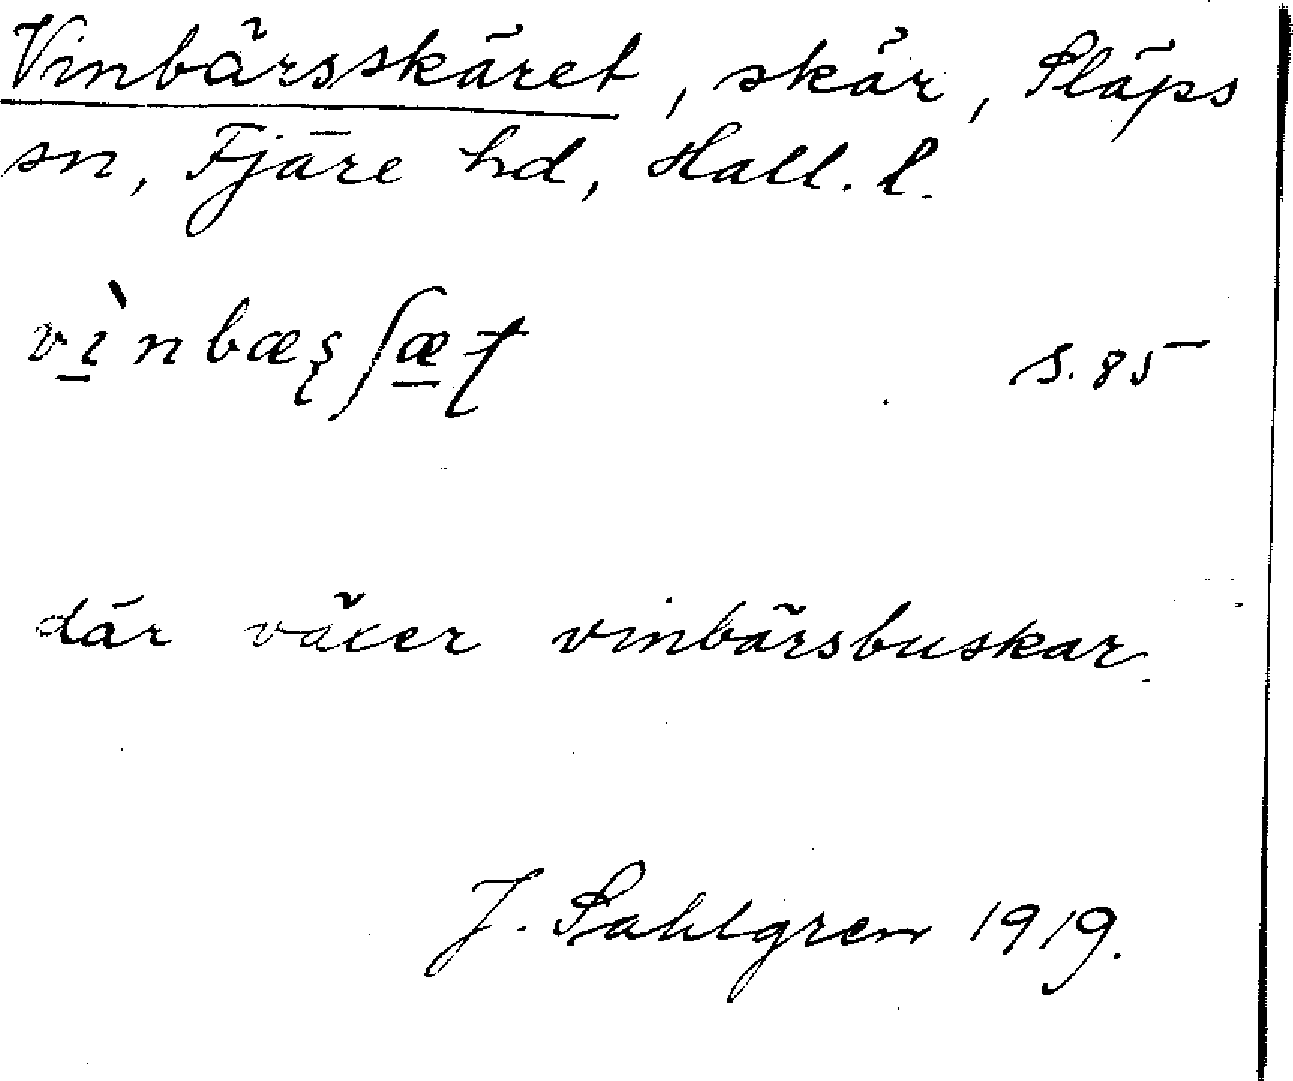 Vinbärsskäret, skär, Släps
sn, Fjäre hd, Hall. l.
vı̱̀nbæʂʃæ̱ʈ s. 85
där väcer vinbärsbuskar.
J. Sahlgren 1919.